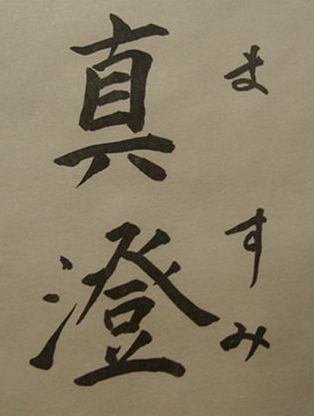 真澄
ますみ